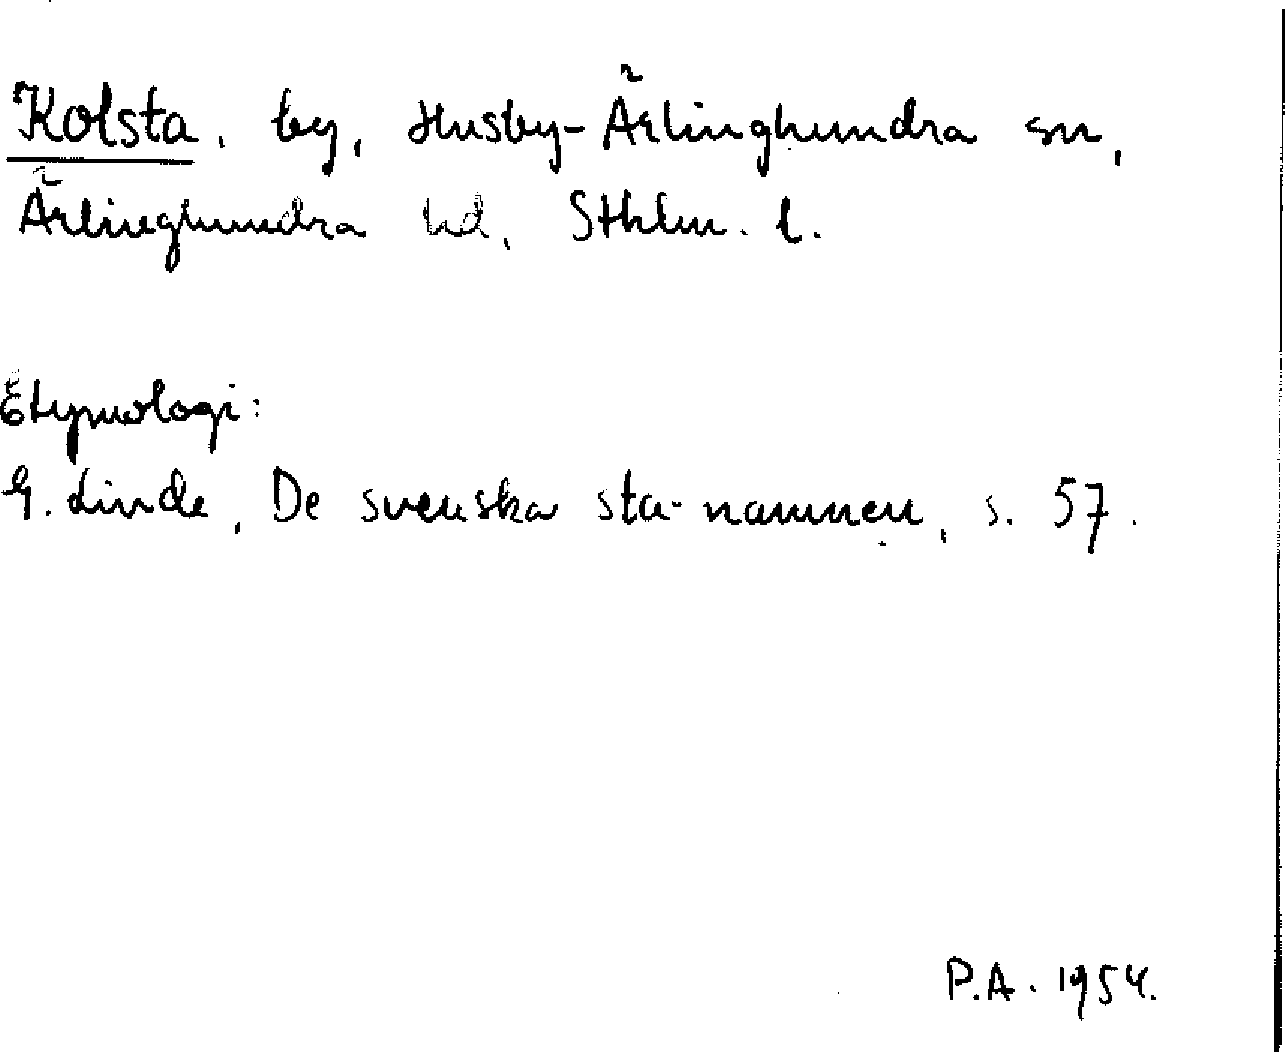 Kolsta, by, Husby-Ärlinghundra sn,
Ärlinghundra hd, Sthlm. l.
Etymologi:
G. Linde, De svenska sta-namnen, s. 57.
P.A. 1954.